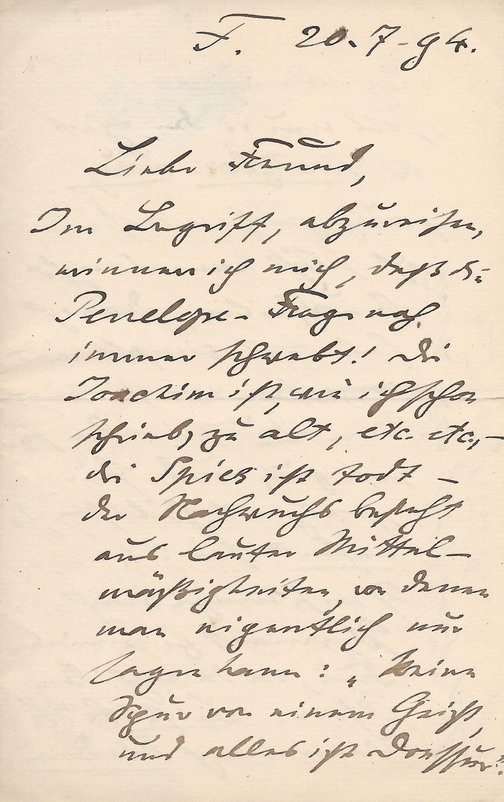 F. 20-7-94.
Lieber Freund,
Im Begriff, abzureisen,
erinnere ich mich, daß die
Penelope-Frage noch
immer schwebt! Die
Joachim ist, wie ich schon
schrieb, zu alt, etc. etc., –
die Spies ist todt –
der Nachwuchs besteht
aus lauter Mittel-
mäßigkeiten, von denen
man eigentlich nur
sagen kann: „keine
Spur von einem Geist,
und alles ist Dressur."